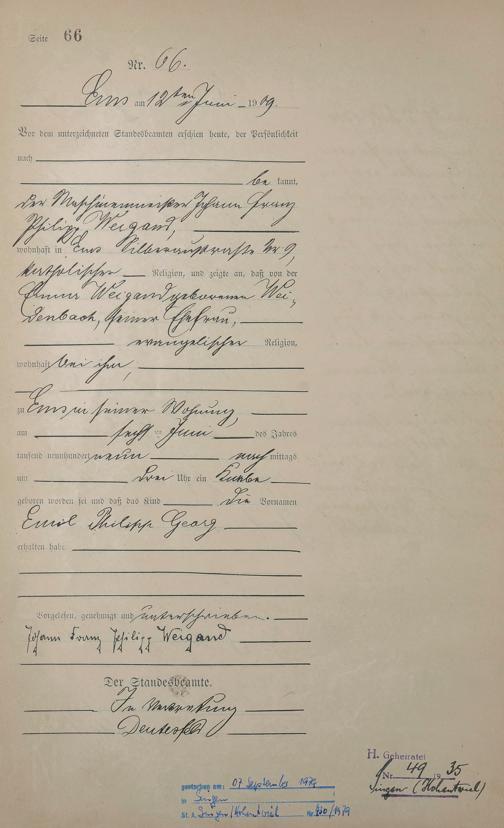 Seite 66
Nr. 66.
Ems am 12ten Juni 1909.
Vor dem unterzeichneten Standesbeamten erschien heute, der Persönlichkeit
nach
be kannt,
der Maschinenmeister Johann Franz
Philipp Weigand,
wohnhaft in Ems Silberaustraße Nr 9,
katholischer Religion, und zeigte an, daß von der
Emma Weigand geborenen Wei-
denbach, seiner Ehefrau,
evangelischer Religion,
wohnhaft bei ihm,
zu Ems in seiner Wohnung,
am sechsten Juni des Jahres
tausend neunhundert neun nach mittags
um drei Uhr ein Knabe
geboren worden sei und daß das Kind die Vornamen
Emil Philipp Georg
erhalten habe
Vorgelesen, genehmigt und unterschrieben.
Johann Franz Philipp Weigand
Der Standesbeamte.
In Vertretung
H. Geheiratet
Nr 49 1935
Singen (Hohentwiel)
gestorben am: 07. September 1979
in Singen
St. A. Singen/Hohentwiel Nr. /1979